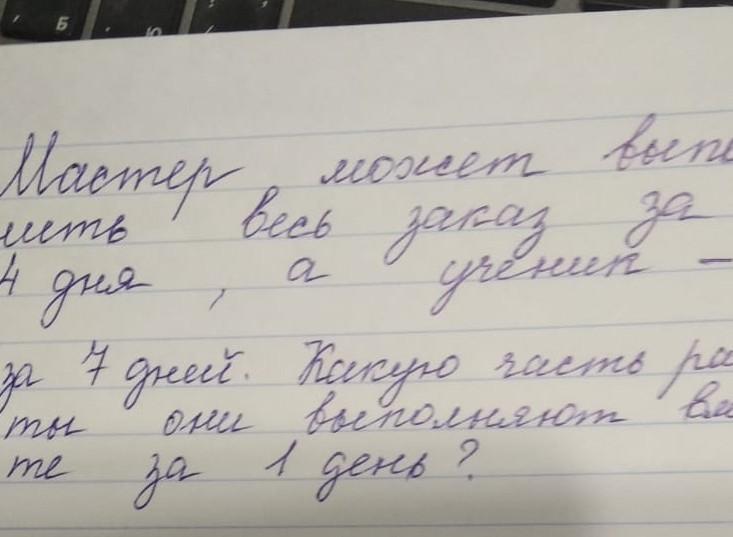 Б Ю
Мастер может выпо
нить весь заказ за
4 дня, а ученик –
за 7 дней. Какую часть ра
ты они выполняют вм
те за 1 день?